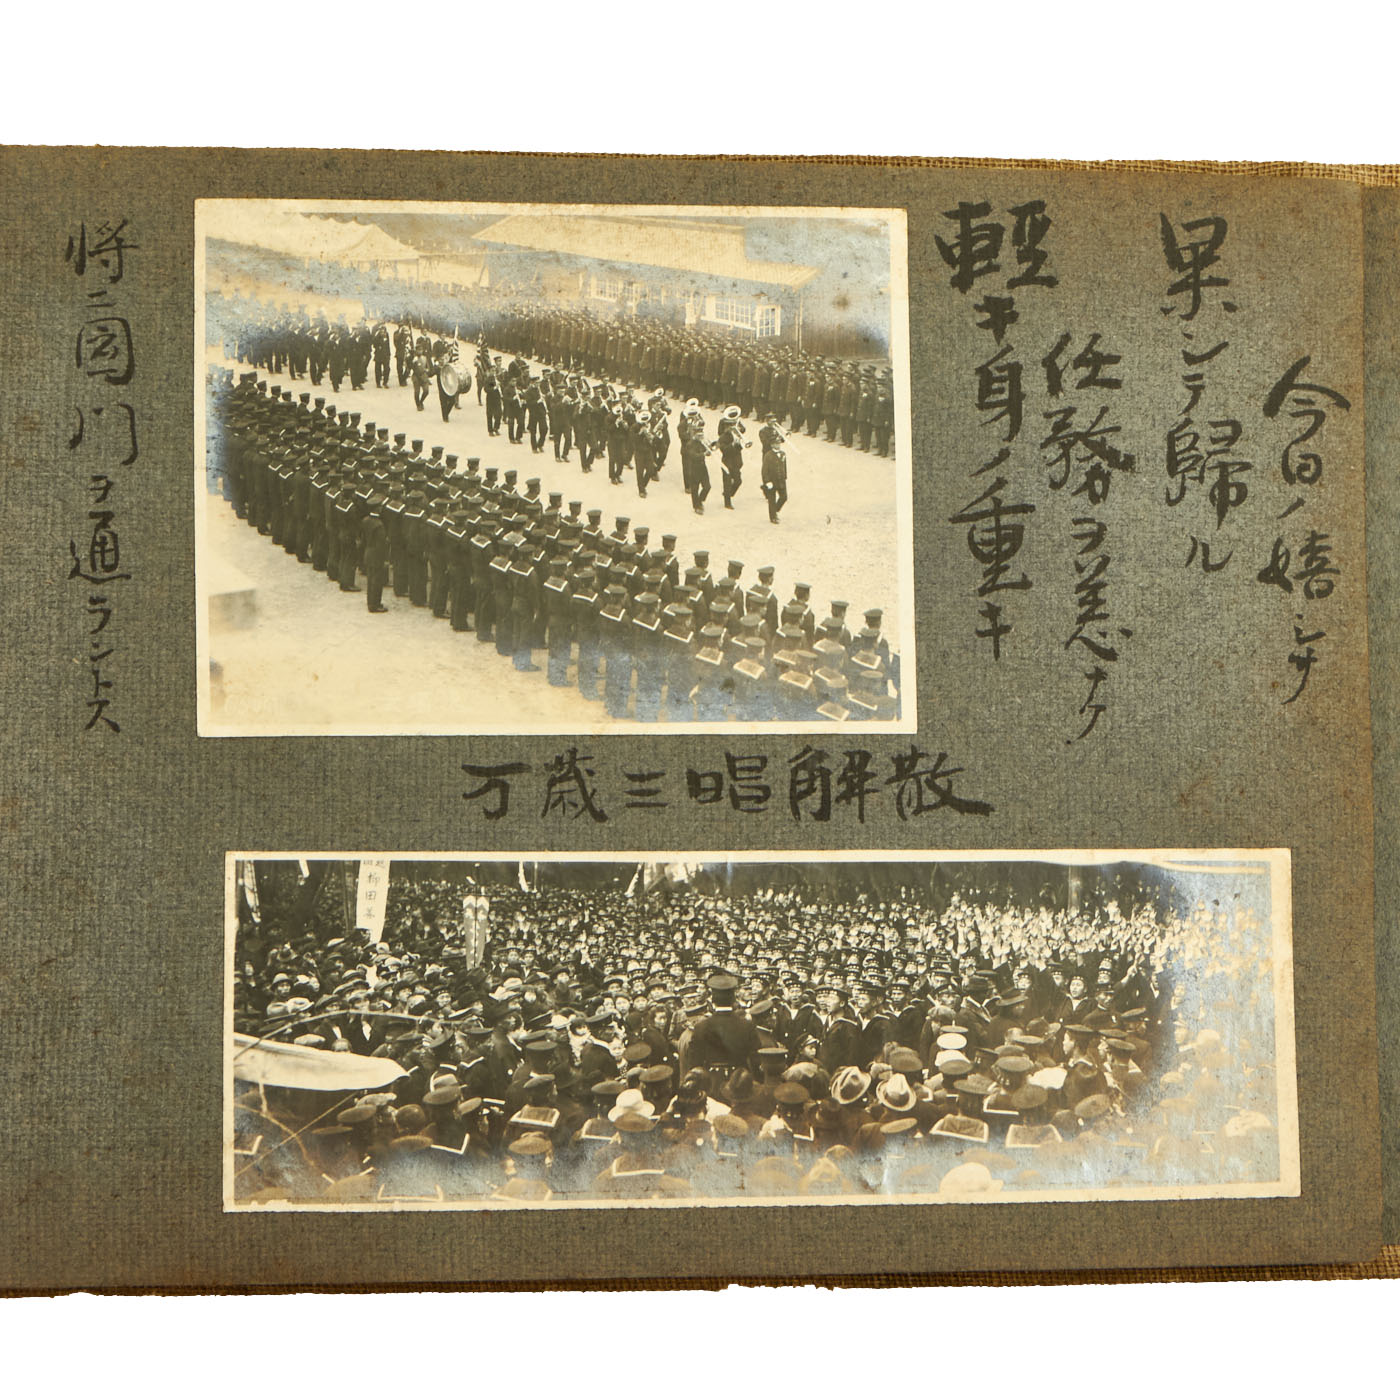 輕キ身ノ重キ
任務ヲ恙ナク
果シテ歸ル
今日ノ嬉シサ
将ニ図門ヲ通ラントス
万歳三唱解散
柳田